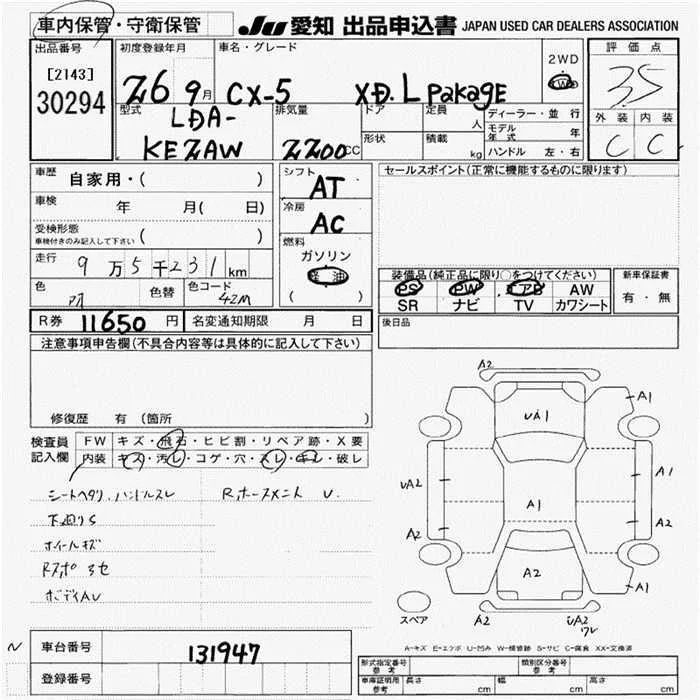 車内保管・守衛保管 JU 愛知 出品申込書 JAPAN USED CAR DEALERS ASSOCIATION
出品番号 初度登録年月 車名・グレード 2WD 評価点
[2143] 30294 26 9月 CX-5 XD. L PaKagE 4WD 3.5
型式 LDA-KE2AW 排気量 2200CC ドア 定員 人 ディーラー・並行 外装 内装
形状 積載 kg モデル年式 年 C C
ハンドル 左・右
車歴 自家用・( ) シフト AT セールスポイント(正常に機能するものに限ります)
車検 年 月( 日) 冷房 AC
受検形態 車検付きのみ記入して下さい ( ) 燃料 ガソリン
走行 9万5千231km 軽油 ( ) 装備品(純正品に限り○をつけてください) 新車保証書
色 色替 色コード 42M PS PW エアB AW 有・無
SR ナビ TV カワシート
R券 11650円 名変通知期限 月 日 後日品
注意事項申告欄(不具合内容等は具体的に記入して下さい)
修復歴 有 (箇所
検査員記入欄 FW キズ・飛石・ヒビ割・リペア跡・X要
内装 キズ・汚レ・コゲ・穴・スレ・キレ・破レ
シートヘタリ.ハンドルスレ
下廻りS
ホイールキズ
ボディAU
A2
UA1
A1
UA2
A1
A1
A2
A2
A2
A1
スペア
A2
UA2
ワレ
A-キズ E-エクボ U-凹み W-補修跡 S-サビ C-腐食 XX-交換済
N 車台番号 131947
登録番号
型式指定番号 参考 類別区分番号 参考
車庫証明用 参考 長さ cm 幅 cm 高さ cm